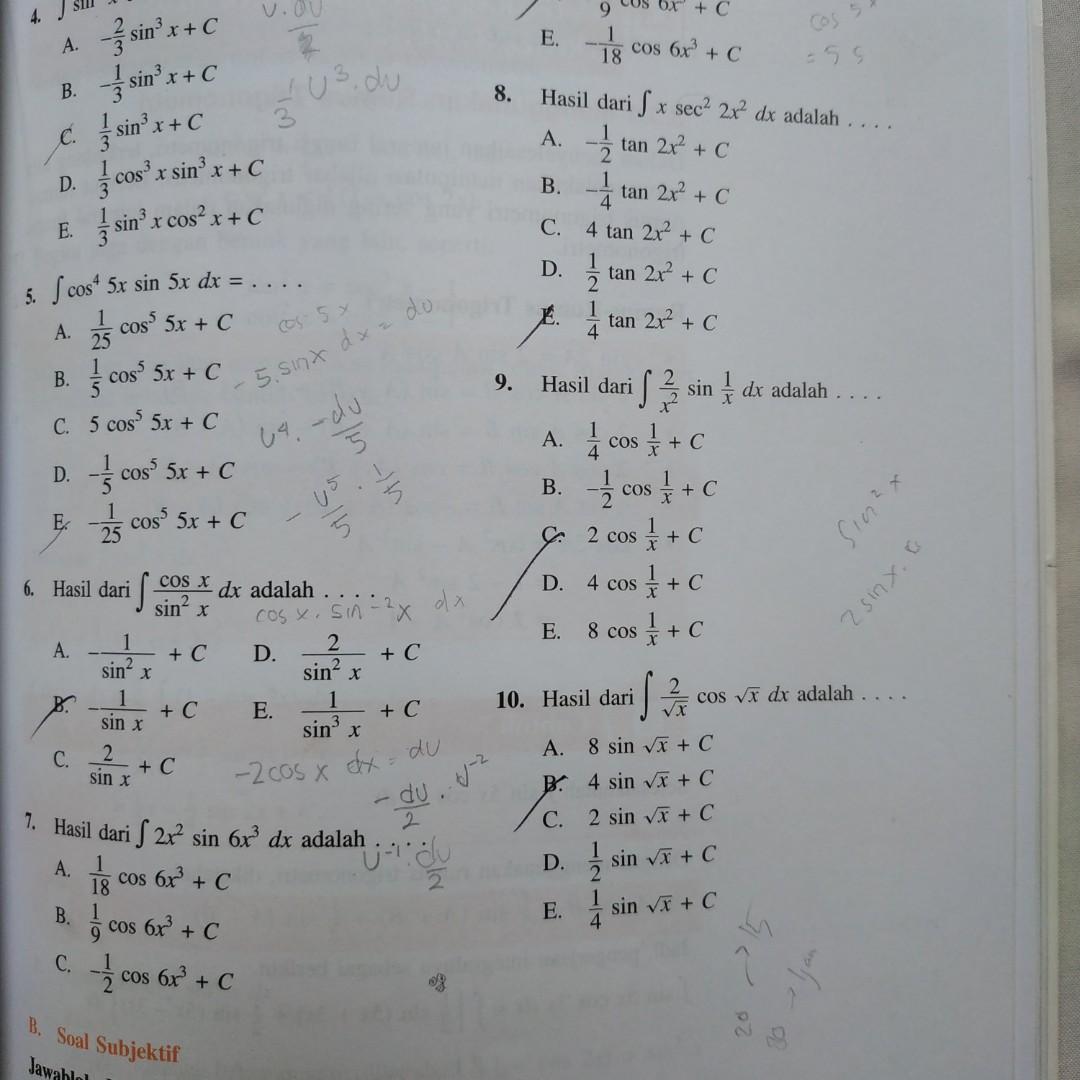 4. ∫ sin
A. -2/3 sin³ x + C
B. -1/3 sin³ x + C
C. 1/3 sin³ x + C
D. 1/3 cos³ x sin³ x + C
E. 1/3 sin³ x cos² x + C
u.du/2
1/3 u³.du
5. ∫ cos⁴ 5x sin 5x dx = . . . .
A. 1/25 cos⁵ 5x + C
B. 1/5 cos⁵ 5x + C
C. 5 cos⁵ 5x + C
D. -1/5 cos⁵ 5x + C
E. -1/25 cos⁵ 5x + C
cos 5x
-5.sinx dx = du
u⁴. -du/5
- u⁵/5 . 1/5
6. Hasil dari ∫ cos x/sin² x dx adalah . . . .
cos x. sin⁻²x dx
A. -1/sin² x + C
B. -1/sin x + C
C. 2/sin x + C
D. 2/sin² x + C
E. 1/sin³ x + C
-2cos x dx = du
-du/2 . u⁻²
u⁻¹. du/2
7. Hasil dari ∫ 2x² sin 6x³ dx adalah . . . .
A. 1/18 cos 6x³ + C
B. 1/9 cos 6x³ + C
C. -1/2 cos 6x³ + C
B. Soal Subjektif
9 cos 6x³ + C
E. -1/18 cos 6x³ + C
cos 5x
= 5 s
8. Hasil dari ∫ x sec² 2x² dx adalah . . . .
A. -1/2 tan 2x² + C
B. -1/4 tan 2x² + C
C. 4 tan 2x² + C
D. 1/2 tan 2x² + C
E. 1/4 tan 2x² + C
9. Hasil dari ∫ 2/x² sin 1/x dx adalah . . . .
A. 1/4 cos 1/x + C
B. -1/2 cos 1/x + C
C. 2 cos 1/x + C
D. 4 cos 1/x + C
E. 8 cos 1/x + C
sin² x
2 sinx. c
10. Hasil dari ∫ 2/√x cos √x dx adalah . . . .
A. 8 sin √x + C
B. 4 sin √x + C
C. 2 sin √x + C
D. 1/2 sin √x + C
E. 1/4 sin √x + C
20 → 15